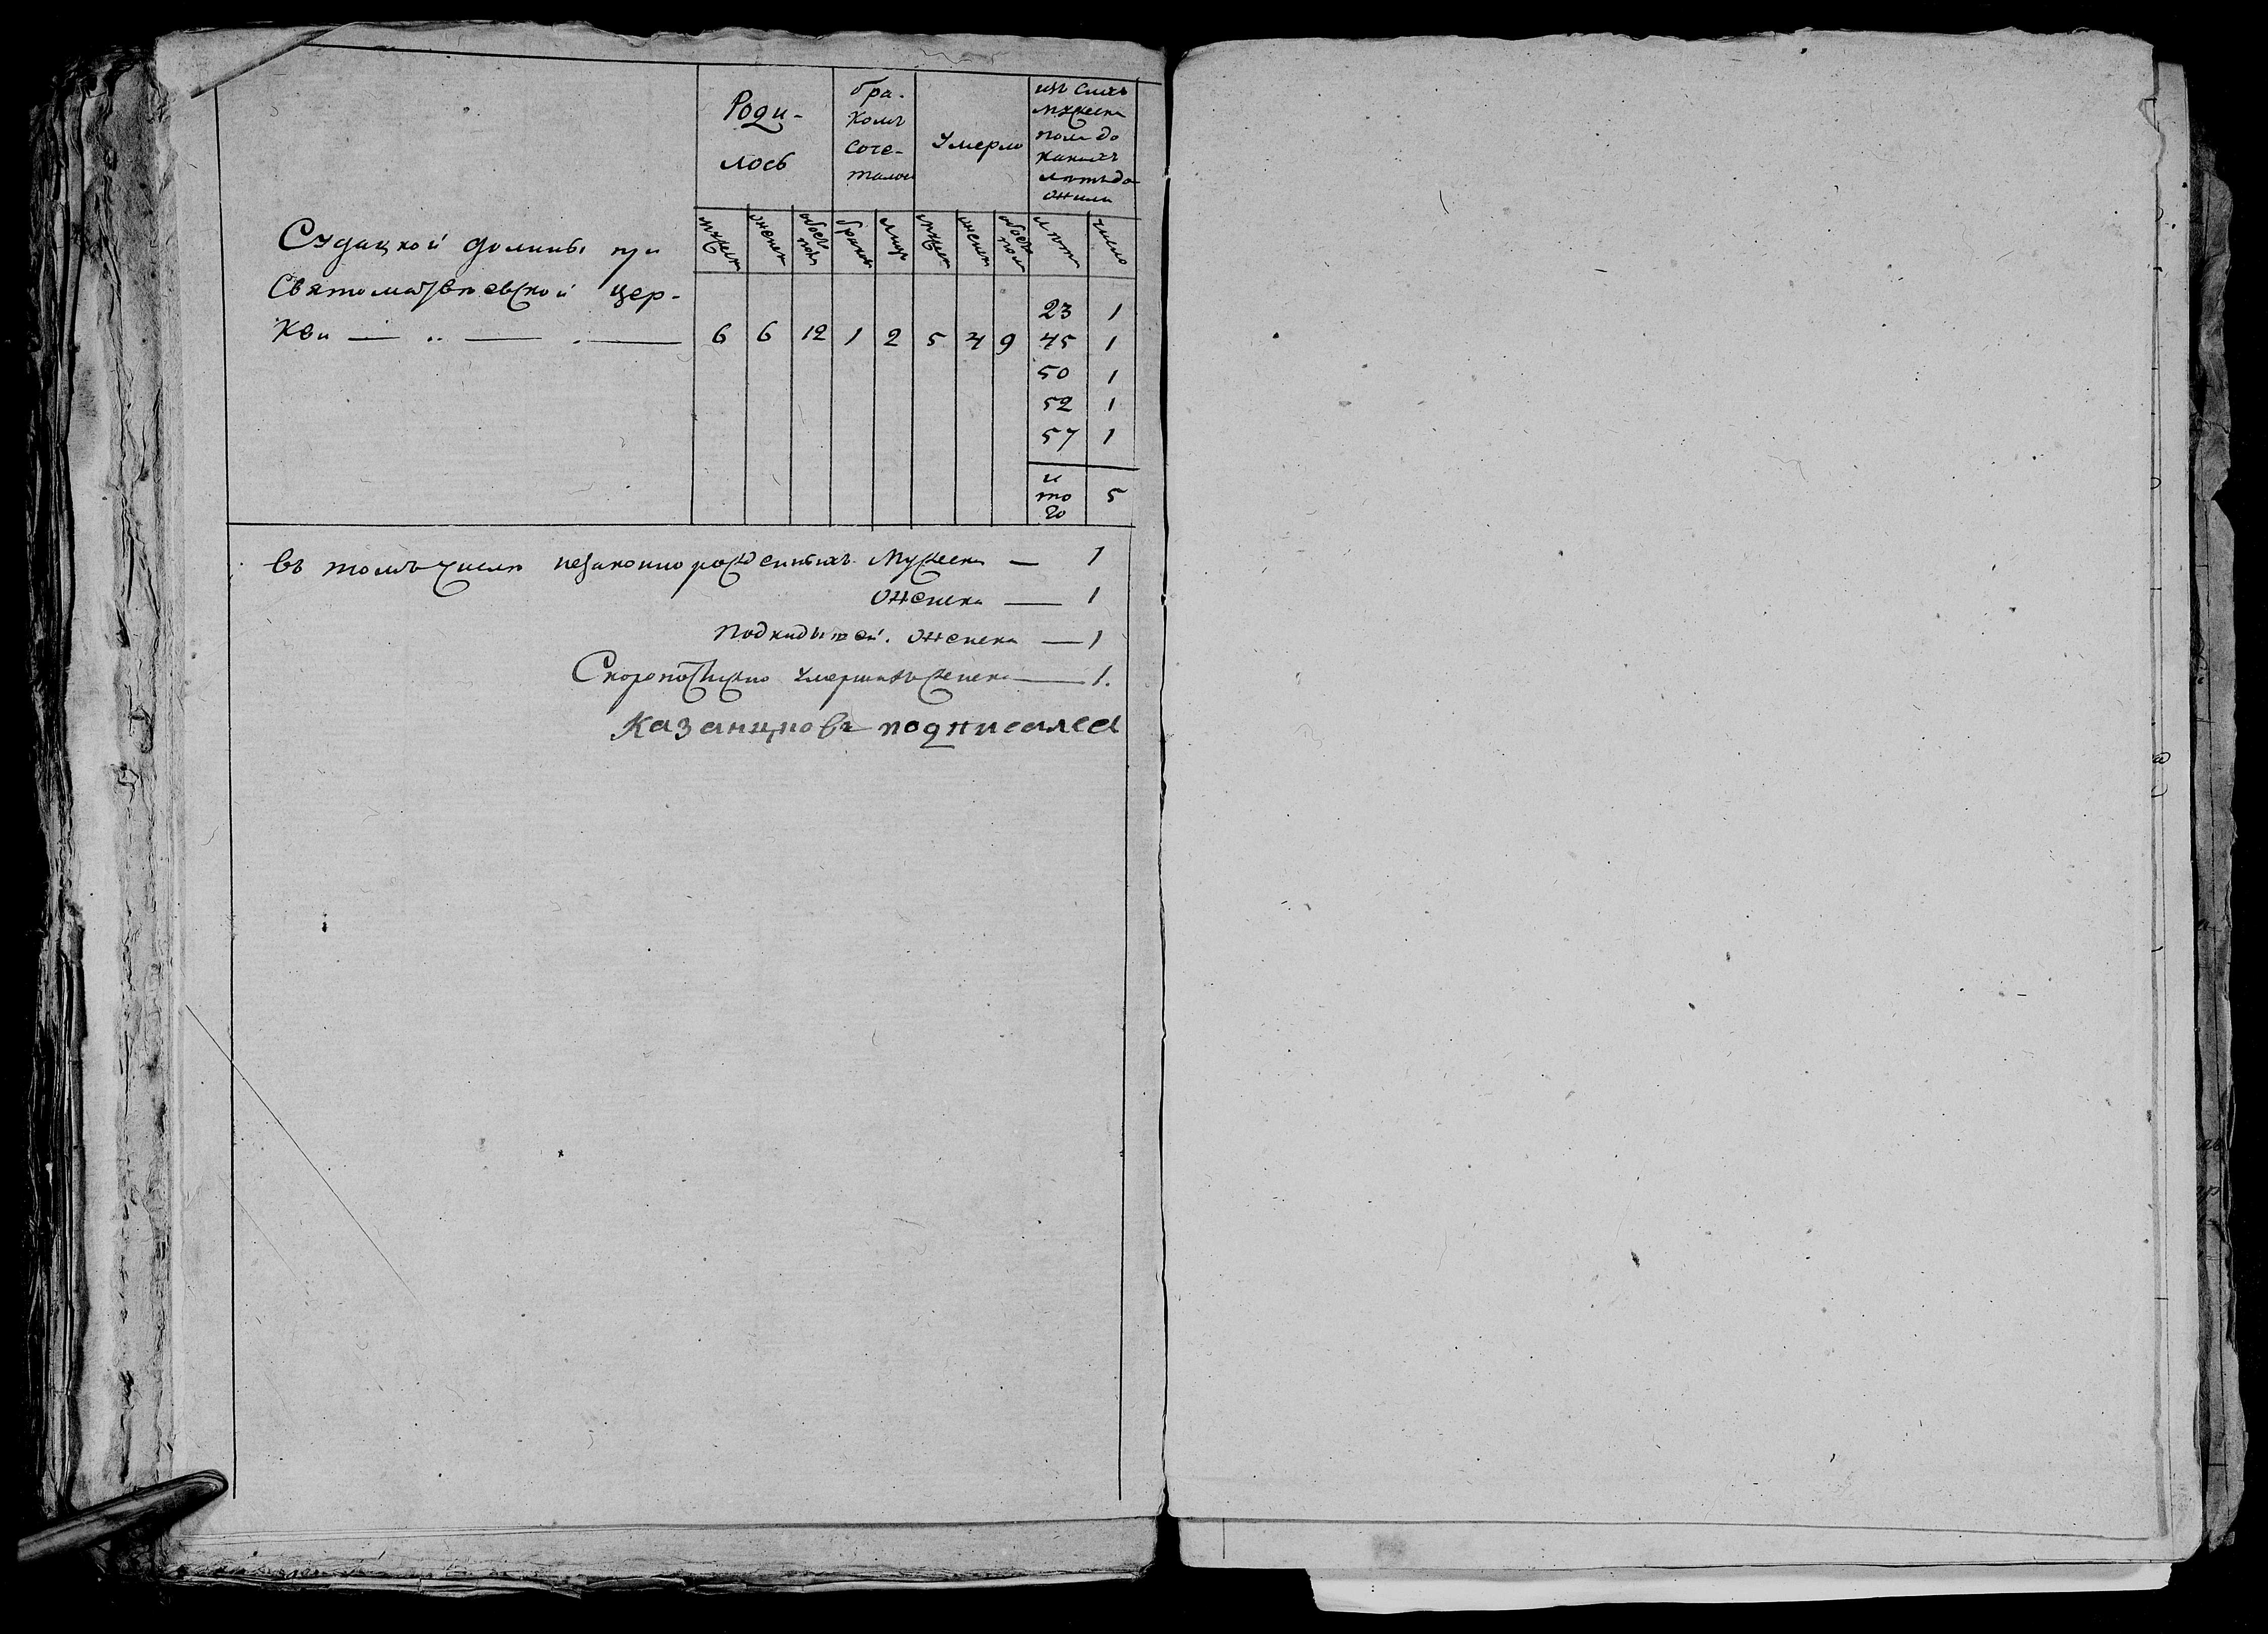 Роди-
лось
бра-
комъ
соче-
талось
Умерло
изъ сихъ
мужеска
пола до
какихъ
лѣтъ до-
жили
мужеск
женск
обоего пола
браковъ
лицъ
мужеск
женск
обоего пола
лѣтъ
число
Судацкой долины при
Святоматѳѣевской цер-
кви
6 6 12 1 2 5 4 9
23 1
45 1
50 1
52 1
57 1
и
то
го
5
въ томъ числѣ незаконнорожденныхъ мужеска — 1
женска — 1
подкидышей. женска — 1
Скоропостижно умершихъ женска — 1.
Казанцровъ подписался